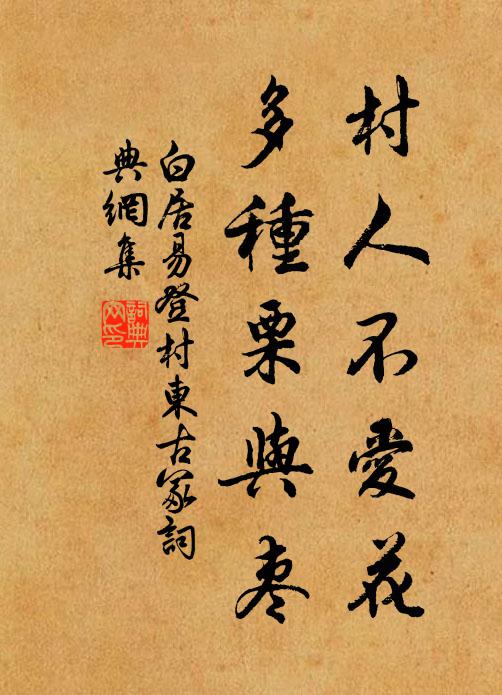 村人不愛花
多種栗與枣
白居易登村東古冢詞
典網集
詞典
网印